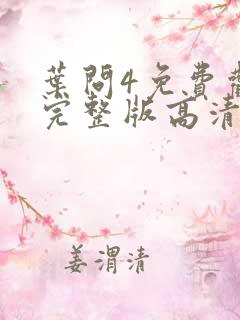 葉問4免費
完整版高清
姜渭清